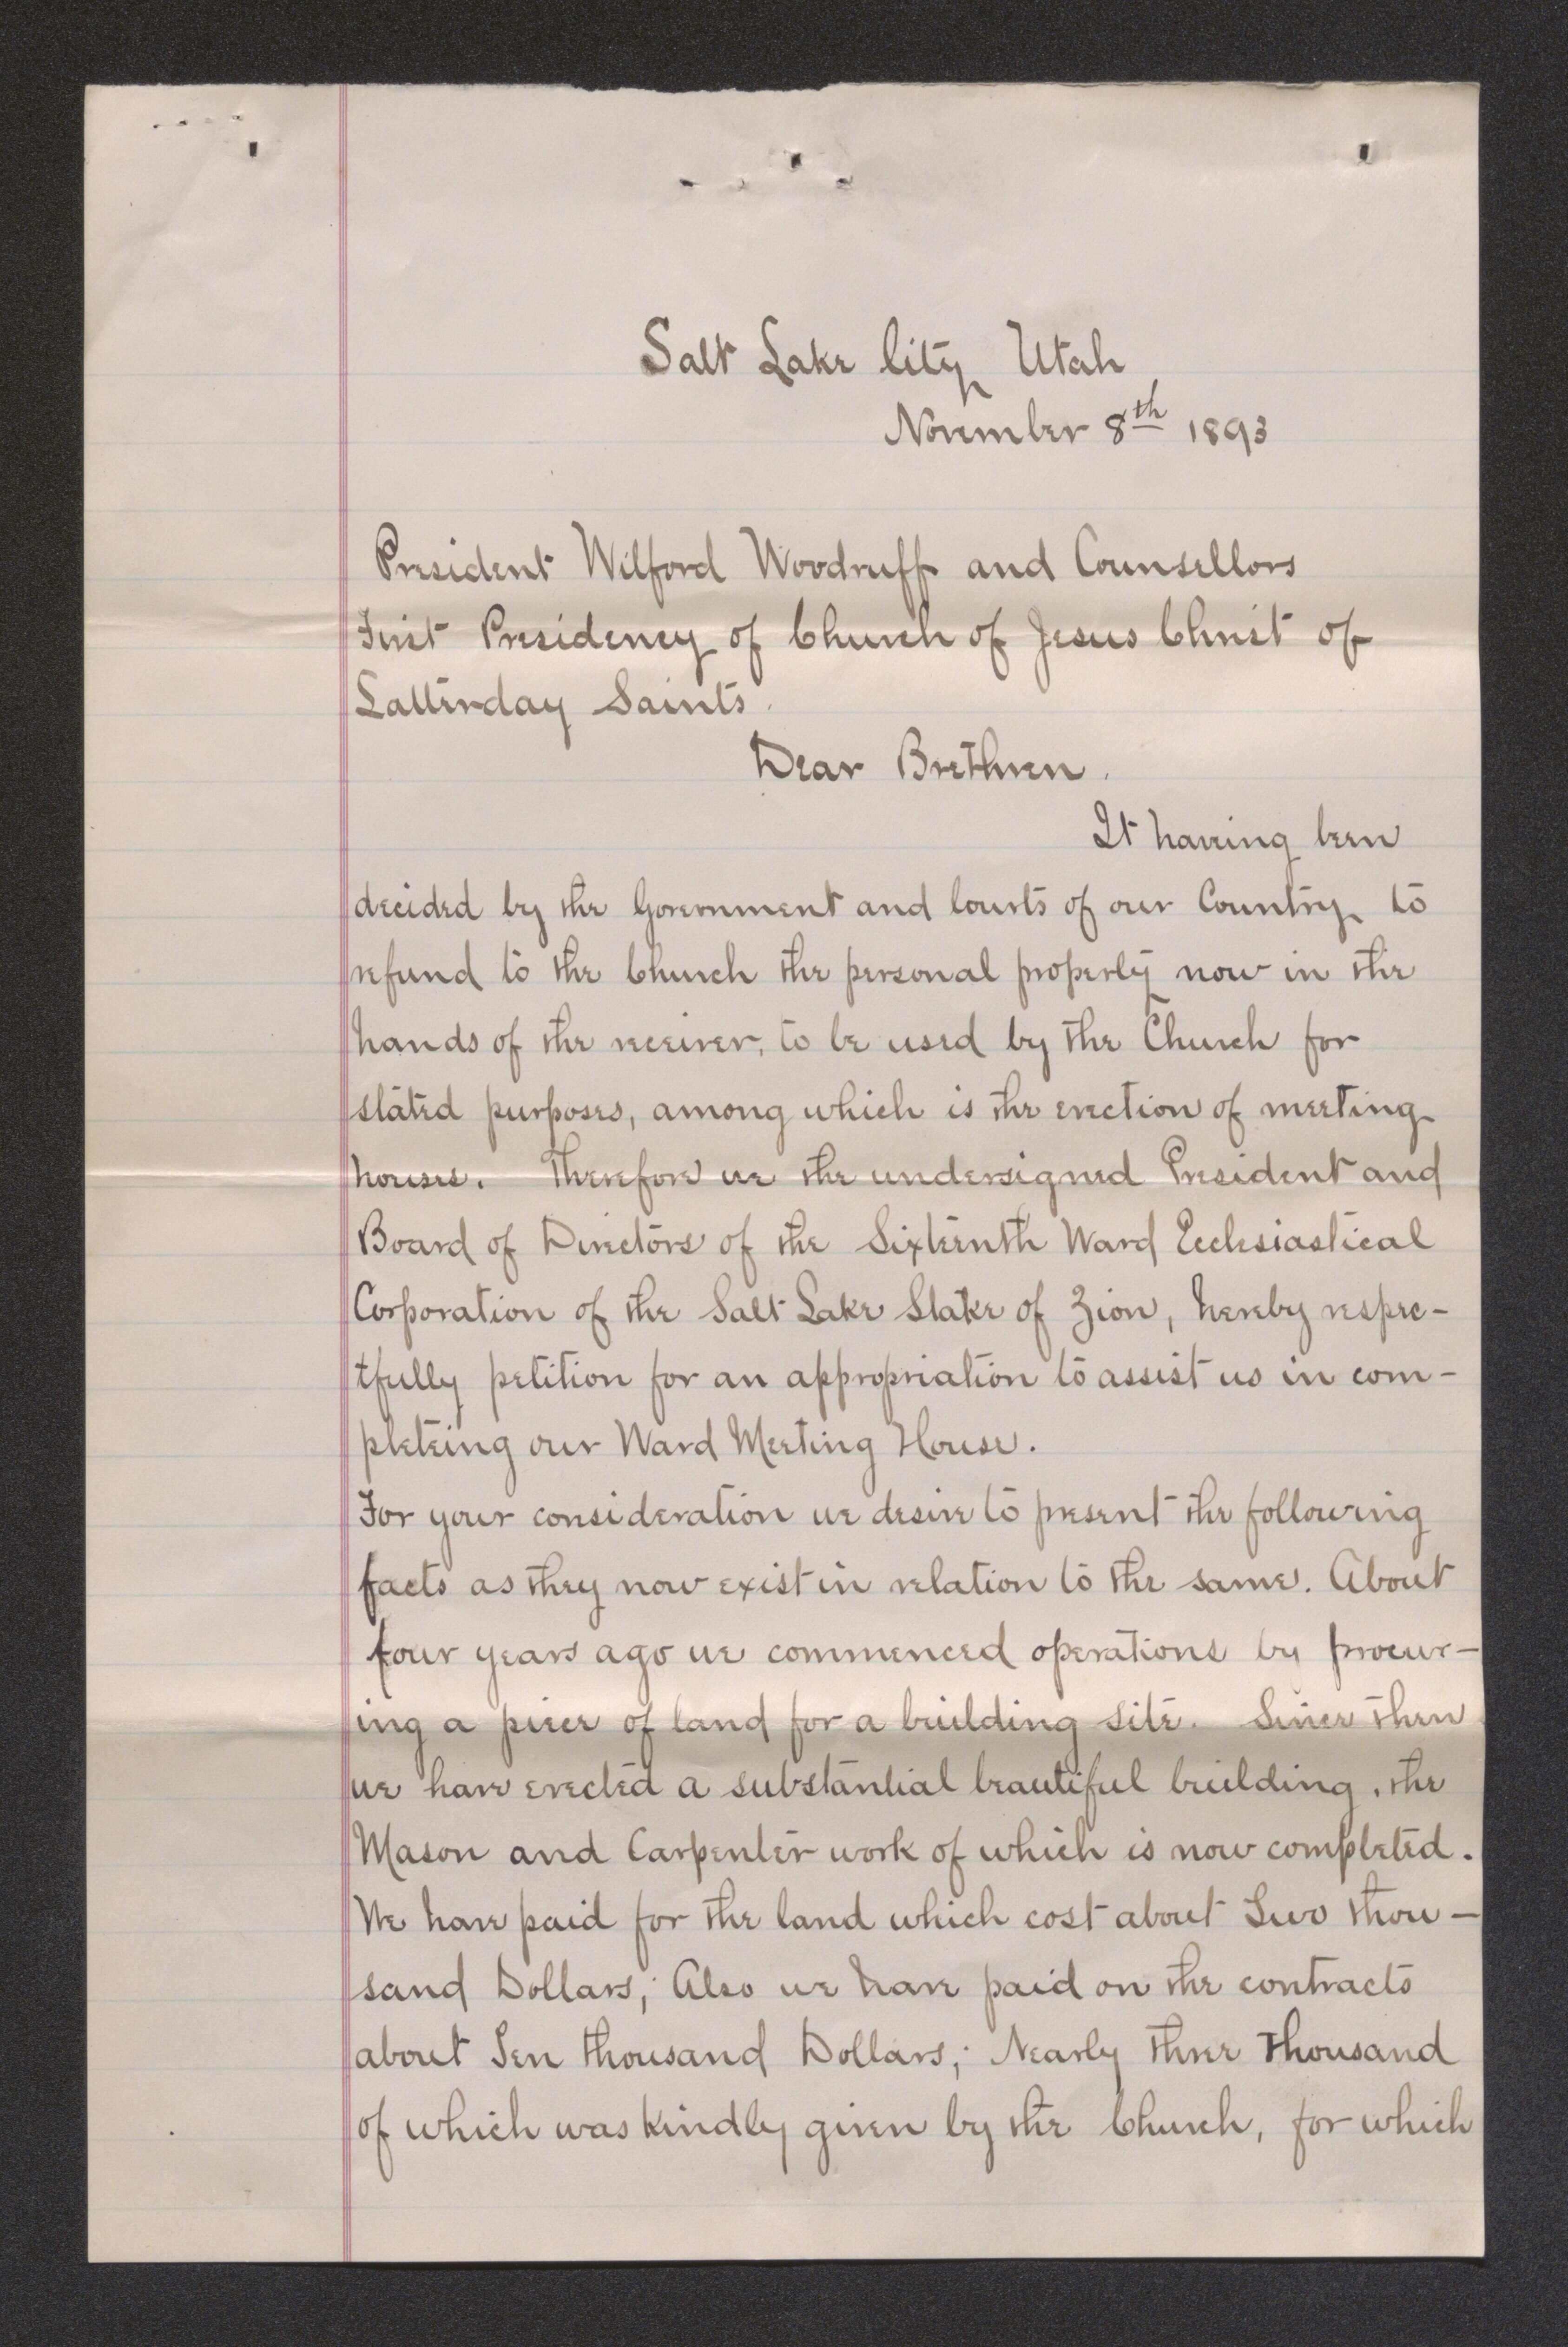 Salt Lake City Utah
November 8th 1893
President Wilford Woodruff and Counsellors
First Presidency of Church of Jesus Christ of
Latterday Saints.
Dear Brethren.
It having been
decided by the Government and Courts of our Country to
refund to the Church the personal property now in the
hands of the receiver, to be used by the Church for
stated purposes, among which is the erection of meeting
houses. Therefore we the undersigned President and
Board of Directors of the Sixteenth Ward Ecclesiastical
Corporation of the Salt Lake Stake of Zion, hereby respec-
tfully petition for an appropriation to assist us in com-
pleteing our Ward Meeting House.
For your consideration we desire to present the following
facts as they now exist in relation to the same. About
four years ago we commenced operations by procur-
ing a piece of land for a building site. Since then
we have erected a substantial beautiful building, the
Mason and Carpenter work of which is now completed.
We have paid for the land which cost about Two thou-
sand Dollars; Also we have paid on the contracts
about Ten thousand Dollars; Nearly three Thousand
of which was kindly given by the Church, for which